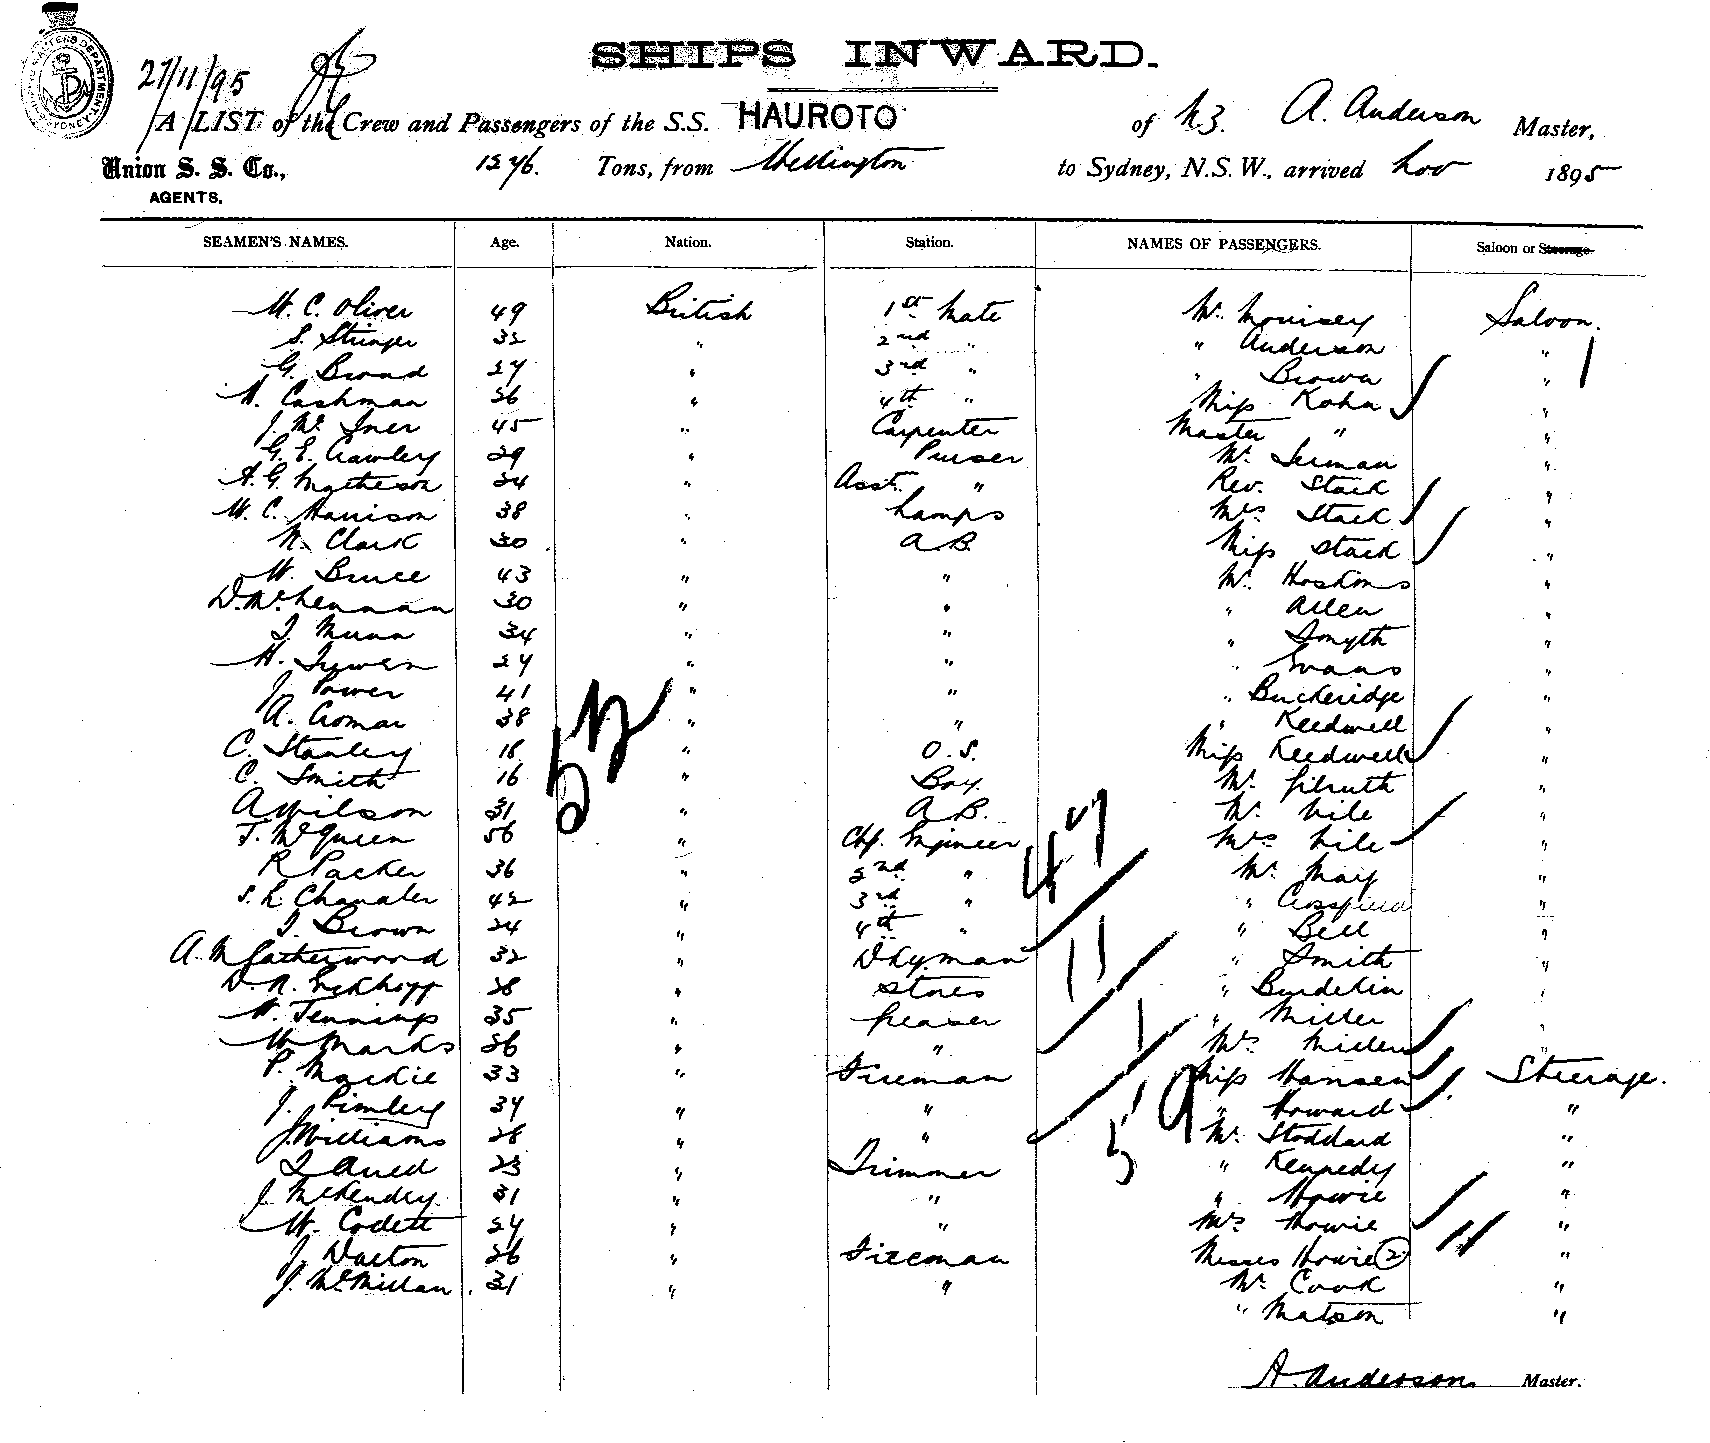 SHIPS INWARD.
27/11/95
A LIST of the Crew and Passengers of the S.S. HAUROTO of N.Z. A. Anderson Master,
Union S. S. Co., 1276. Tons, from Wellington to Sydney, N.S.W., arrived Nov 1895
AGENTS.
SEAMEN'S NAMES. Age. Nation. Station. NAMES OF PASSENGERS. Saloon or Steerage
W. C. Oliver 49 British 1st Mate Mr. Morrisey Saloon.
S. Stringer 32 " 2nd " " Anderson "
G. Broad 27 " 3rd " " Brown "
Cashman 26 " 4th " Miss Kohn "
J. Mc 45 " Carpenter Master " "
G. E. Crawley 29 " Purser Mr. "
A. G. Matheson 24 " Asst. " Rev. Stack "
W. C. Harrison 38 " Lamps Mrs Stack "
N. Clark 30 " A.B. Miss Stack "
W. Bruce 43 " " Mr. Hoskins "
D. McLennan 30 " " " Allen "
Munn 34 " " " Smyth "
H. 24 " " " Evans "
J. Power 41 " " " Buckeridge "
A. 38 " " " Keedwell "
C. Stanley 18 " O.S. Miss Keedwell "
C. Smith 16 " Boy. Mr. Gilruth "
A Wilson 31 " A.B. Mr. Vile "
McQueen 56 " Chf. Engineer Mrs Vile "
R Packer 36 " 2nd " Mr. May "
S. L. Chandler 42 " 3rd " " Crossfield "
Brown 24 " 4th " " Bell "
A. M Catherwood 32 " Dkyman " Smith "
D. A. 28 " Stores " "
Jennings 35 " Greaser " Miller "
W Marks 26 " " Mrs Miller "
P. Mackie 33 " Fireman Miss Hansen Steerage.
J. 34 " " " Howard "
J. Williams 28 " " Mr. Stoddard "
23 " Trimmer " Kennedy "
J. McKendry 31 " " " Howie "
W. 24 " " Mrs Howie "
J. Dalton 26 " Fireman Misses Howie (2) "
J. McMillan 31 " " Mr. Cook "
" Matson "
52
47
11
1
59
A. Anderson Master.